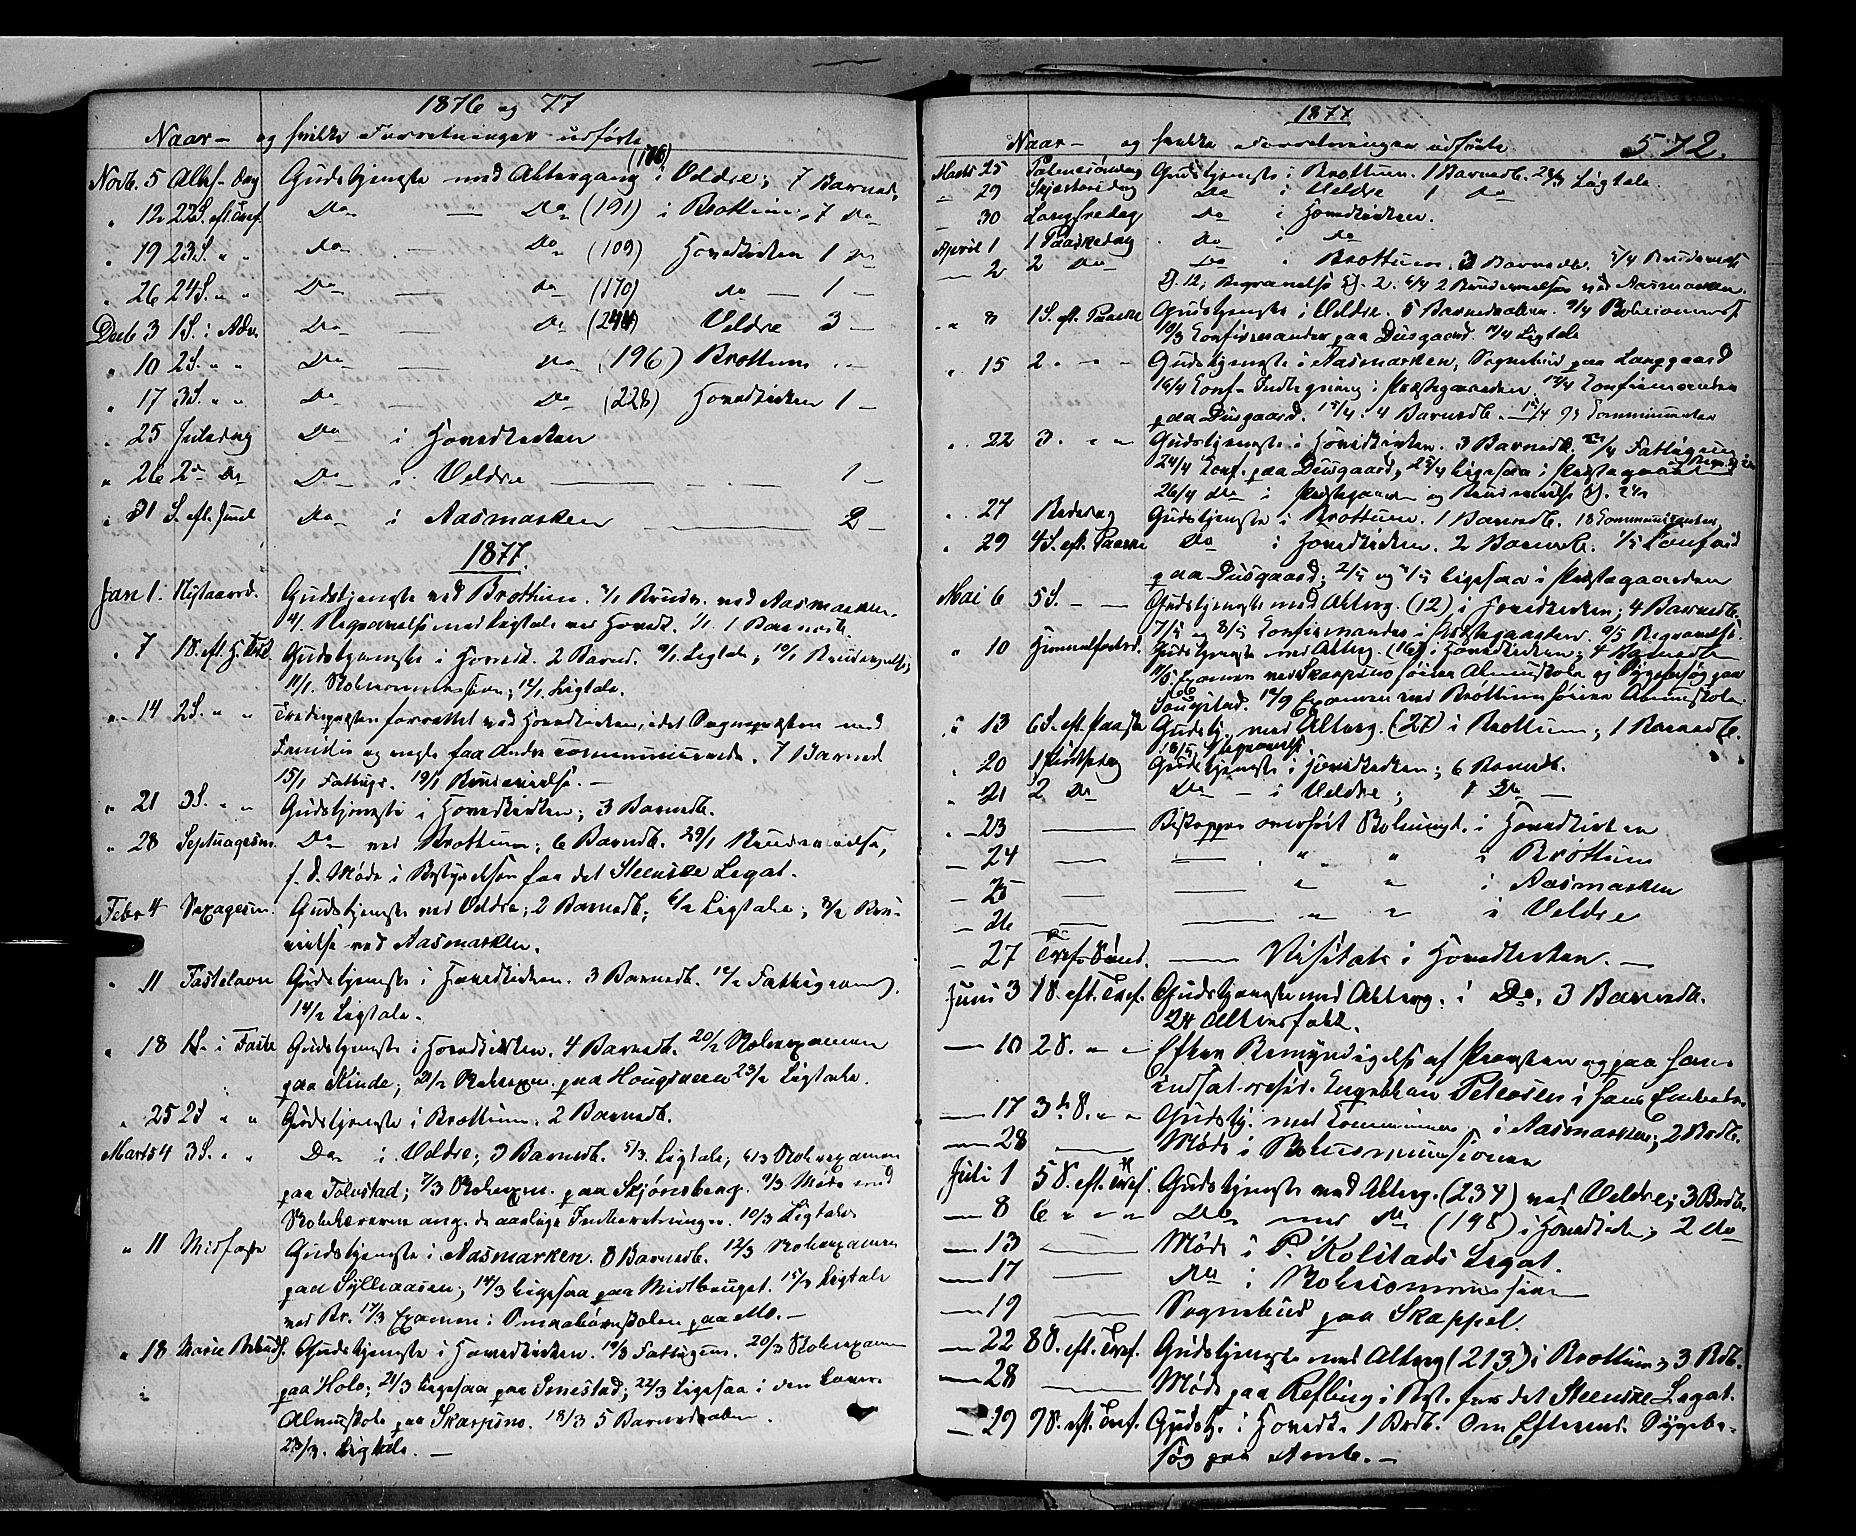 1876 og 77
Naar - og hvilke Forretninger udførte
Novb. 5 Alleh. Dag Gudstjeneste med Altergang (176) i Veldre; 7 Barned.
" 12 22 S. eft. Tref. Do — Do (191) i Brøttum, 7 Do
" 19 23 S. " " Do Do (109) Hovedkirken 1 Do
" 26 24 S. " " Do — do (170) do — 1 —
Decb 3 1 S. i Adv. Do — Do (244) Veldre 3 —
" 10 2 S. " " Do — Do (196) Brøttum " —
" 17 3 S. " " Do — Do (228) Hovedkirken 1 —
" 25 Juledag Do i Hovedkirken
" 26 2den Do Do i Veldre — 1 —
" 31 S. eft. Juul Do i Aasmarken — 2 —
1877.
Jan 1. Nytaarsd. Gudstjeneste ved Brøttum. Brudev. ved Aasmarken.
4/1 Begravelse med Ligtale ved Hovedk. 1 Barnedb.
" 7 1 S. eft. H. 3 K. Gudstjeneste i Hovedk. 2 Barned. 9/1 Ligtale; 10/1 Brudevielse;
11/1 Skolecommission; 12/1 Ligtale.
" 14 2 S. " " Fredspræsten forrettet ved Hovedkirken, idet Sognepræsten med
Familie og nogle faa Andre communicerede. 7 Barned
15/1 Fattigc. 19/1 Brudevielse. —
" 21 3 S. " " Gudstjeneste i Hovedkirken; 3 Barnedb.
" 28 Septuagesim. Do ved Brøttum; 6 Barnedb. 29/1 Brudevielse,
s. D. Møde i Bestyrelsen for det Steenske Legat.
Febr 4 Sexagesim. Gudstjeneste ved Veldre; 2 Barnedb; 6/2 Ligtale; 8/2 Bru-
vielse ved Aasmarken.
" 11 Fastelavn Gudstjeneste i Hovedkirken. 3 Barnedb. 12/2 Fattigcomm.
14/2 Ligtale.
" 18 1 S. i Faste Gudstjeneste i Hovedkirken. 4 Barnedb. 20/2 Skoleexamen
paa Kinde; 21/2 Skoleexam. paa Hougsveen 23/2 Ligtale.
" 25 2 S " " Gudstjeneste i Brøttum. 2 Barnedb.
Marts 4 3 S. " " Do i Veldre; 3 Barnedb. 5/3 Ligtale; 6/3 Skoleexamen
paa Tolvstad; 7/3 Skoleexam. paa Skjønsberg. 9/3 Møde med
Skolelærerne ang. de aarlige Indberetninger. 10/3 Ligtale
" 11 Midfaste Gudstjeneste i Aasmarken. 3 Barnedb. 12/3 Skoleexamen
paa Sylliaasen; 14/3 ligesaa paa Midtbruget. 15/3 Ligtale
ved Br. 17/3 Examen i Smaabørnsskolen paa Mo. —
" 18 Mariæ Bebud. Gudstjeneste i Hovedkirken. 19/3 Fattigcom. 20/3 Skoleexamen
paa Holo; 21/3 ligesaa paa Smestad; 22/3 Ligesaa i den Lavere
Almuskole paa Skarpsno. 18/3 5 Barnedaaben.
23/3. Ligtale. —
1877
Naar - og hvilke Forretninger udførte 572.
Marts 25 Palmesøndag Gudstjeneste i Brøttum. 1 Barnedb. 28/3 Ligtale.
" 29 Skjærtorsdag Do i Veldre 1 Do
— 30 Langfredag Do i Hovedkirken.
April 1 1 Paaskedag Do i Do
— 2 2 Do Do i Brøttum. 3 Barnedb. 5/4 Brudevielse
Kl. 12; Begravelse Kl. 2. 6/4 2 Brudevielser ved Aasmarken.
" 8 1 S. eft. Paaske Gudstjeneste i Veldre. 5 Barnedaaben. 9/4 Skolecommiss.
10/3 Konfirmander paa Dusgaard. 11/4 Ligtale
" 15 2. " " Gudstjeneste i Aasmarken, Sognebud paa Langgaard
16/4 Conf. Indtegning i Præstegaarden. 17/4 Confirmander
paa Dusgaard. 15/4. 4 Barnedb. — 15/4 93 Communicanter
" 22 3. " " Gudstjeneste i Hovedkirken. 3 Barnedb. 23/4 Fattigcom
24/4 Conf. paa Dusgaard, 25/4 ligesaa i Præstegaarden
26/4 do i Præstegaarden og Brudevielse Kl.
" 27 Bededag Gudstjeneste i Brøttum. 1 Barnedb. 18 Communicanter,
" 29 4 S. eft. Paaske Do i Hovedkirken. 2 Barnedb. 1/5 Confirm
paa Dusgaard; 2/5 og 3/5 ligesaa i Præstegaarden
Mai 6 5 S. — — Gudstjeneste med Alterg. (12) i Hovedkirken; 4 Barnedb.
7/5 og 8/5 Confirmander i Præstegaarden. 9/5 Begravelse.
" 10 Himmelfartsd. Gudstjeneste med Alterg. (16) i Hovedkirken; 4 Barnedb
11/5 Examen ved Skarpsno høiere Almuskole og Sygebesøg paa
12/5 Examen ved Brøttums høiere Almuskole.
" 13 6 S. eft. Paaske Gudstj. med Alterg. (27) i Brøttum, 1 Barnedb.
18/5 Begravelse
" 20 1 Pintsedag Gudstjeneste i Hovedkirken; 6 Barnedb.
" 21 2 Do Do — i Veldre; 1 Do —
" 23 — Biskoppen overhørt Skoleungd. i Hovedkirken
— 24 — — " " i Brøttum
— 25 — — " " i Aasmarken
— 26 — " " i Veldre
— 27 Tref. Sønd. — Visitats i Hovedkirken. —
Juni 3 1 S. eft. Tref. Gudstjeneste med Alterg. i Do. 3 Barnedb.
24 Altersfolk.
— 10 2 S. " " Efter Bemyndigelse af Provsten og paa hans
indsat resid. Kapellan Petersen i hans Embede.
— 17 3die S. " " Gudstj. med Communion i Aasmarken; 2 Brdb.
— 28 — Møde i Skolecommissionen
Juli 1 5 S. eft. Tref. Gudstjeneste med Alterg. (234) ved Veldre; 3 Brdb.
— 8 6 " " " Do med do (198) i Hovedkirk; 2 do
— 13 — Møde i P. Kolstads Legat.
— 17 — do i Skolecommission
— 19 — Sognebud paa Skappel.
— 22 8 S. eft. Tref. Gudstjeneste med Alterg (213) i Brøttum; 3 Bdb.
— 28 — Møde paa Refling i Best. for det Steenske Legat.
— 29 9 S. eft. Tref. Gudstj. i Hovedk. 1 Brdb. Om Efterm. Sygebe-
søg paa —